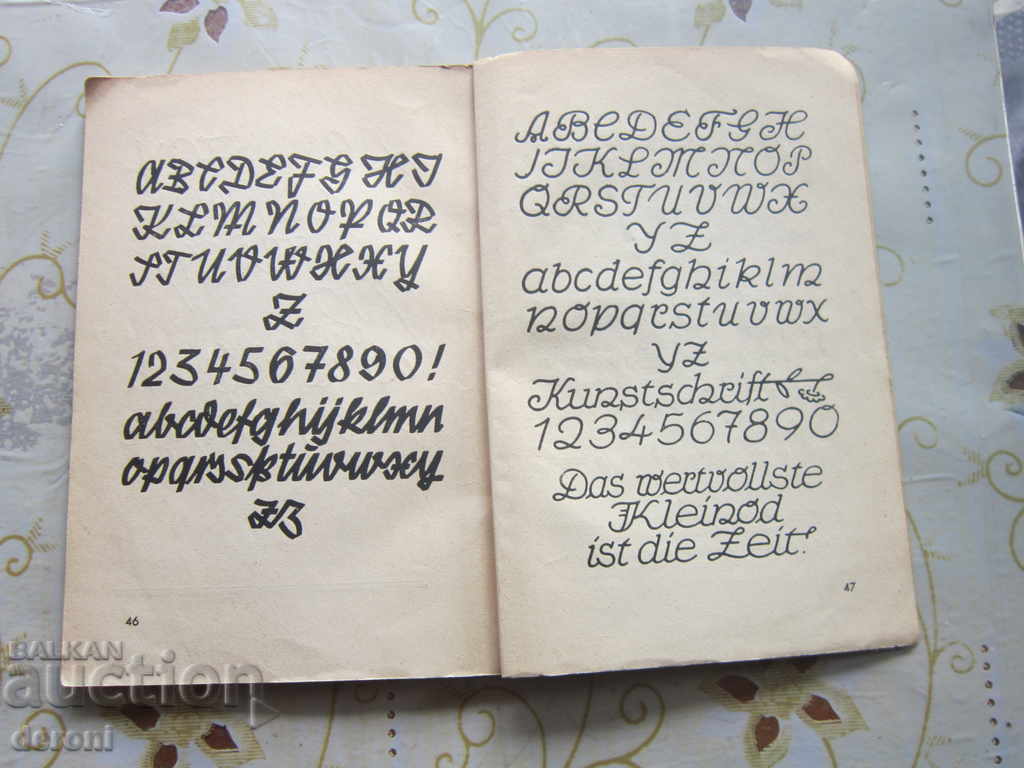 ABCDEFGHI
KLMNOPQR
STUVWHXY
Z
1234567890!
abcdefghijklmn
opqrsſßtuvwxy
z
46
ABCDEFGH
IJKLMNOP
QRSTUVWX
YZ
abcdefghiklm
nopqrstuvwx
yz
Kunstschrift
1234567890
Das wertvollste
Kleinod
ist die Zeit!
47
BALKAN
auction
deroni